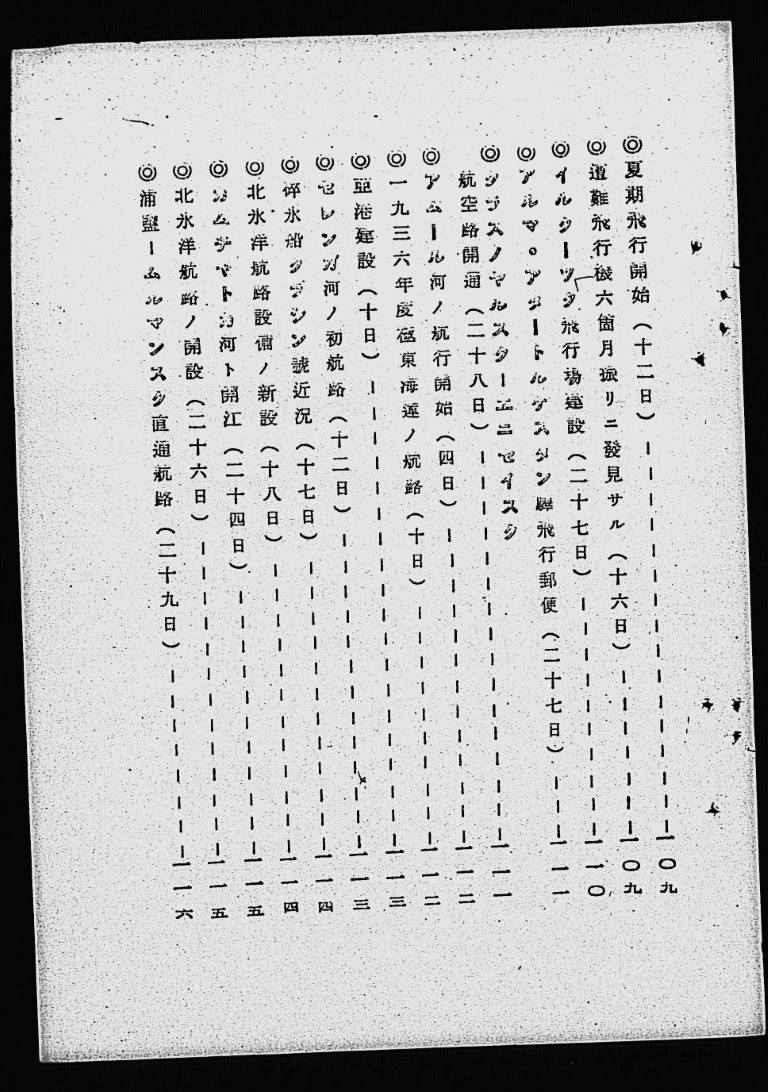 ◎夏期飛行開始（十二日）――一〇九
◎遭難飛行機六箇月振リニ發見サル（十六日）――一〇九
◎イルクーツク飛行場建設（二十七日）――一一〇
◎アルマ。アタートルゲスタン驛飛行郵便（二十七日）――一一一
◎クラスノヤルスクーエニセイスク
航空路開通（二十八日）――一一一
◎アムール河ノ航行開始（四日）――一一二
◎一九三六年度極東海運ノ航路（十日）――一一二
◎亞港建設（十日）――一一三
◎セレンガ河ノ初航路（十二日）――一一三
◎碎氷船クラシン號近況（十七日）――一一四
◎北氷洋航路設備ノ新設（十八日）――一一四
◎カムチヤトカ河ト開江（二十四日）――一一五
◎北氷洋航路ノ開設（二十六日）――一一五
◎浦鹽ームルマンスク直通航路（二十九日）――一一六